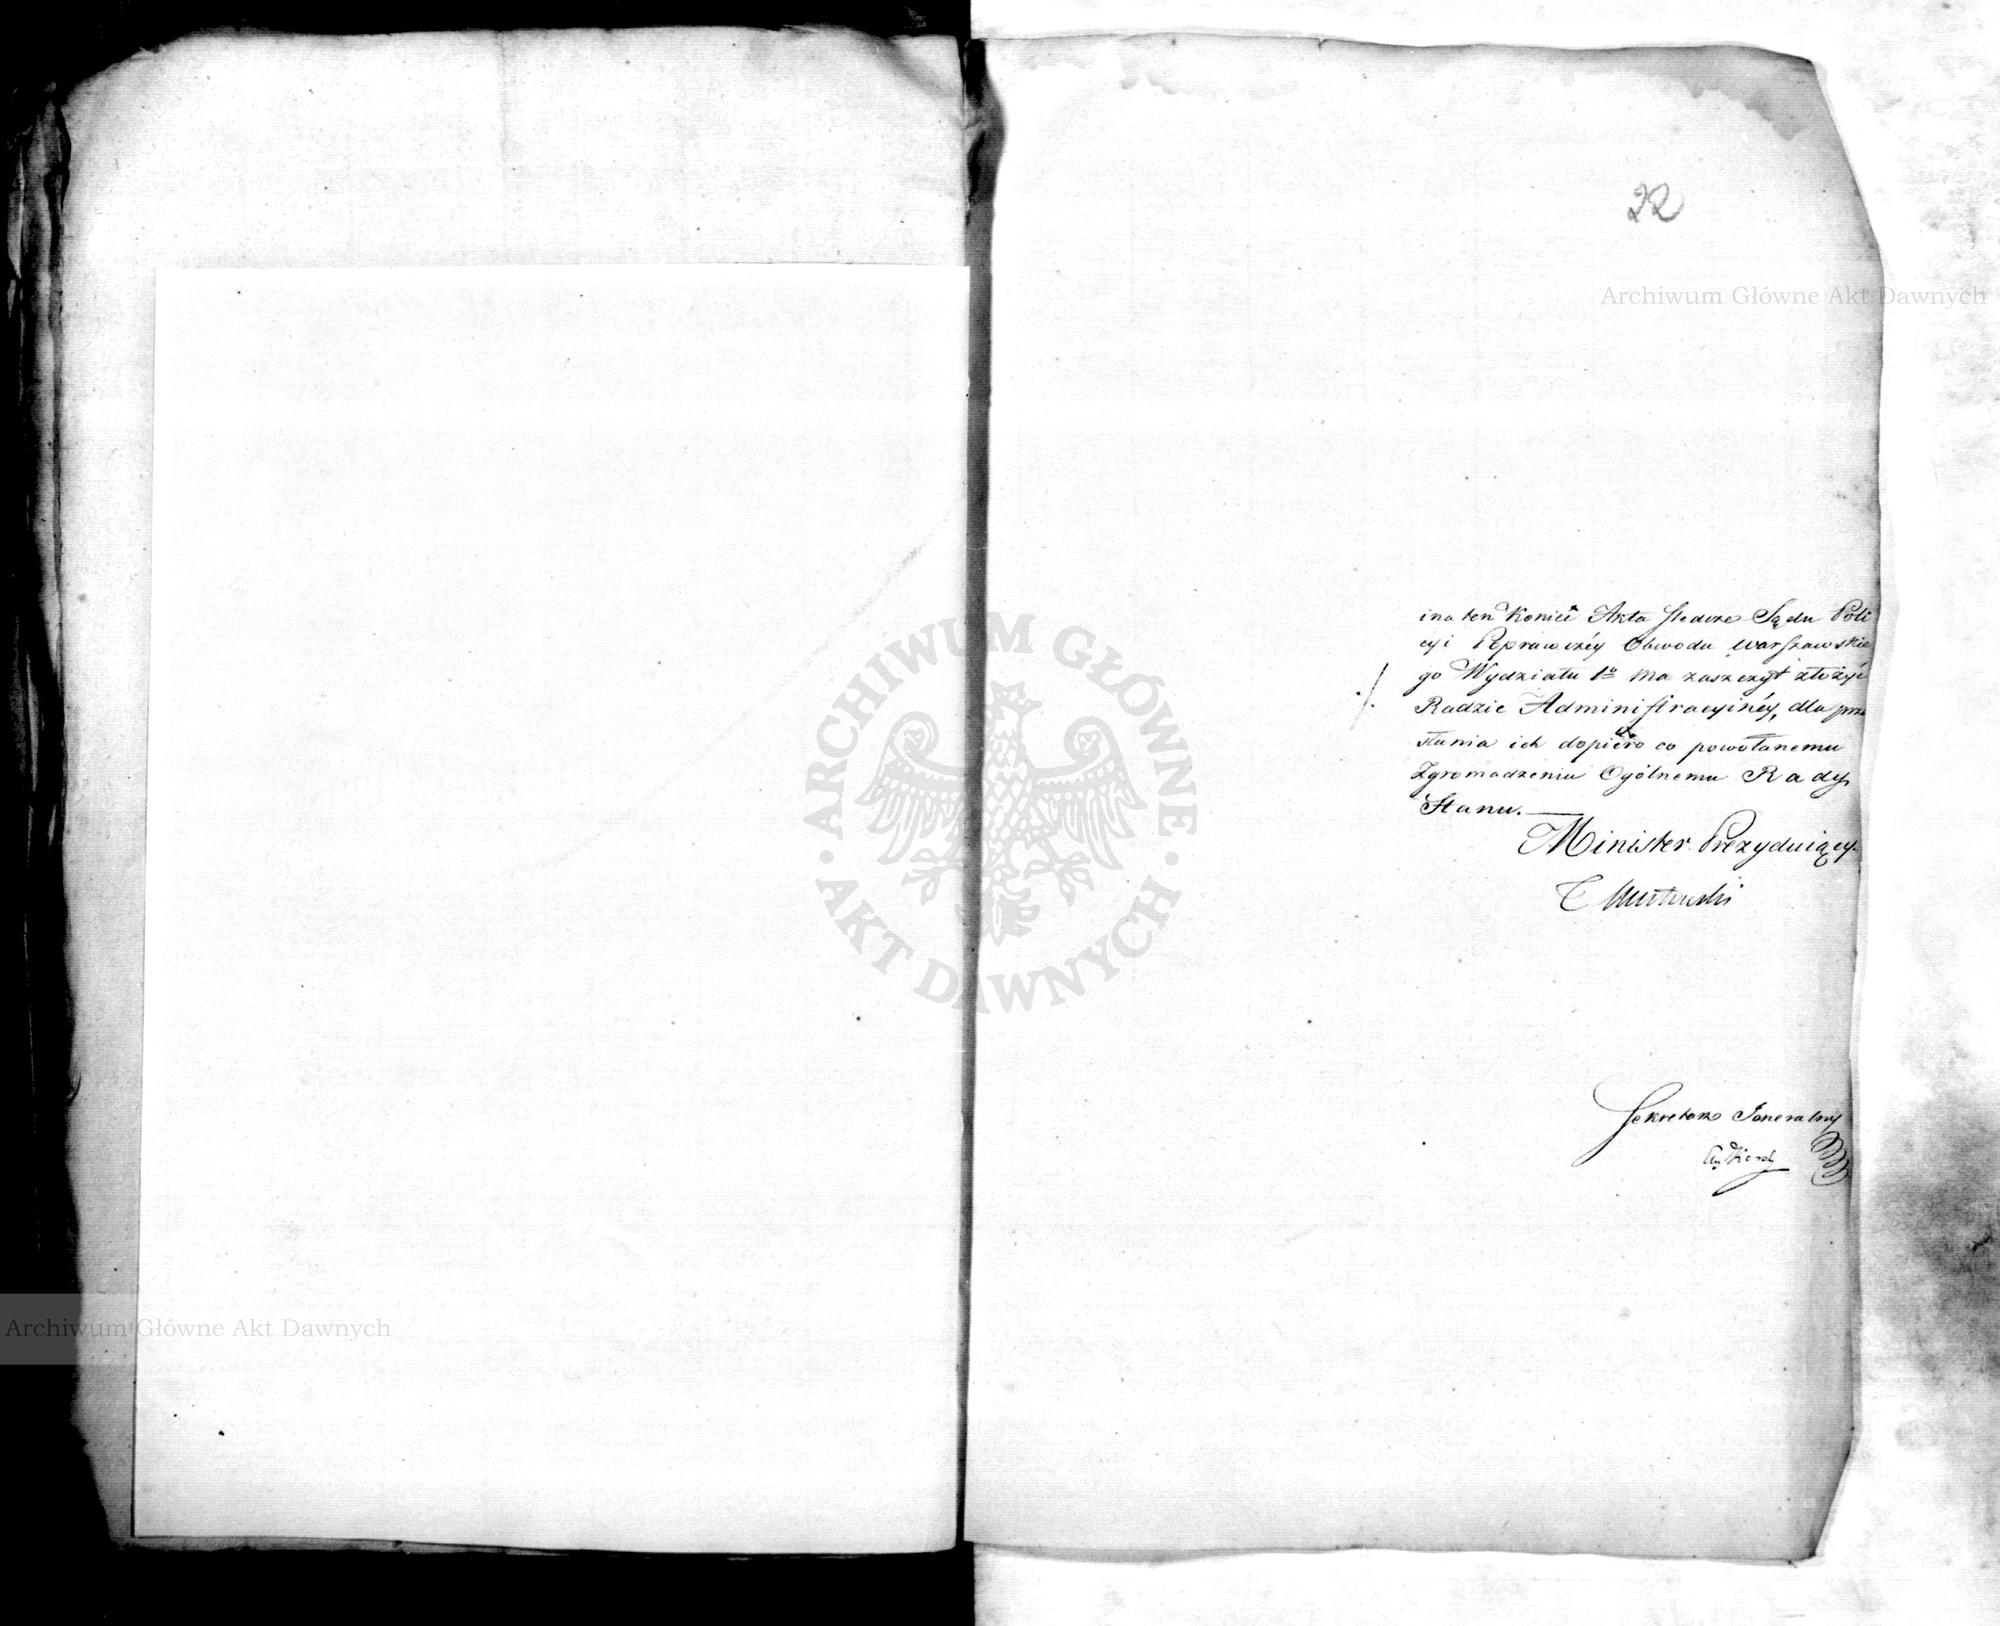 22
Archiwum Główne Akt Dawnych
i na ten koniec Akta śledcze Sądu Poli
cyi Poprawczéy Obwodu Warszawskie
go Wydziału 1º ma zaszczyt złożyć
Radzie Administracyinéy, dla prze
słania ich dopiero co powołanemu
Zgromadzeniu Ogólnemu Rady
Stanu.
Minister Prezyduiący
Sekretarz Jeneralny
ARCHIWUM GŁÓWNE
AKT DAWNYCH
Archiwum Główne Akt Dawnych